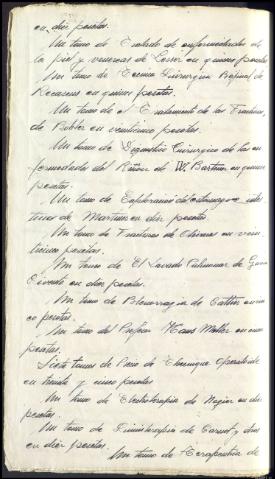 en diez pesetas.
Un tomo de Tratado de enfermedades de
la piel y venereas de Lesser en quince pesetas
Un tomo de Tecnica Quirurgica Vaginal de
Recasens en quince pesetas.
Un tomo de Tratamiento de las Fracturas
de Böhler en veinticinco pesetas.
Un tomo de Diagnostico Quirurgico de las en
fermedades del Riñon de W. Bartrina en quince
pesetas.
Un tomo de Exploracion del estomago e intes
tinos de Martinez en diez pesetas.
Un tomo de Fracturas de en vein
ticinco pesetas.
Un tomo de El Lavado Pulmonar de Garcia
Vicente en diez pesetas.
Un tomo de Blenorragia de en cin
co pesetas.
Un tomo del Profesor Hans Moller en cinco
pesetas.
Siete tomos de Precis de Technique Operatoire
en treinta y cinco pesetas
Un tomo de Electroterapia de en diez
pesetas.
Un tomo de Quinisterapia de Carnot y dos
en diez pesetas
Un tomo de Terapeutica de